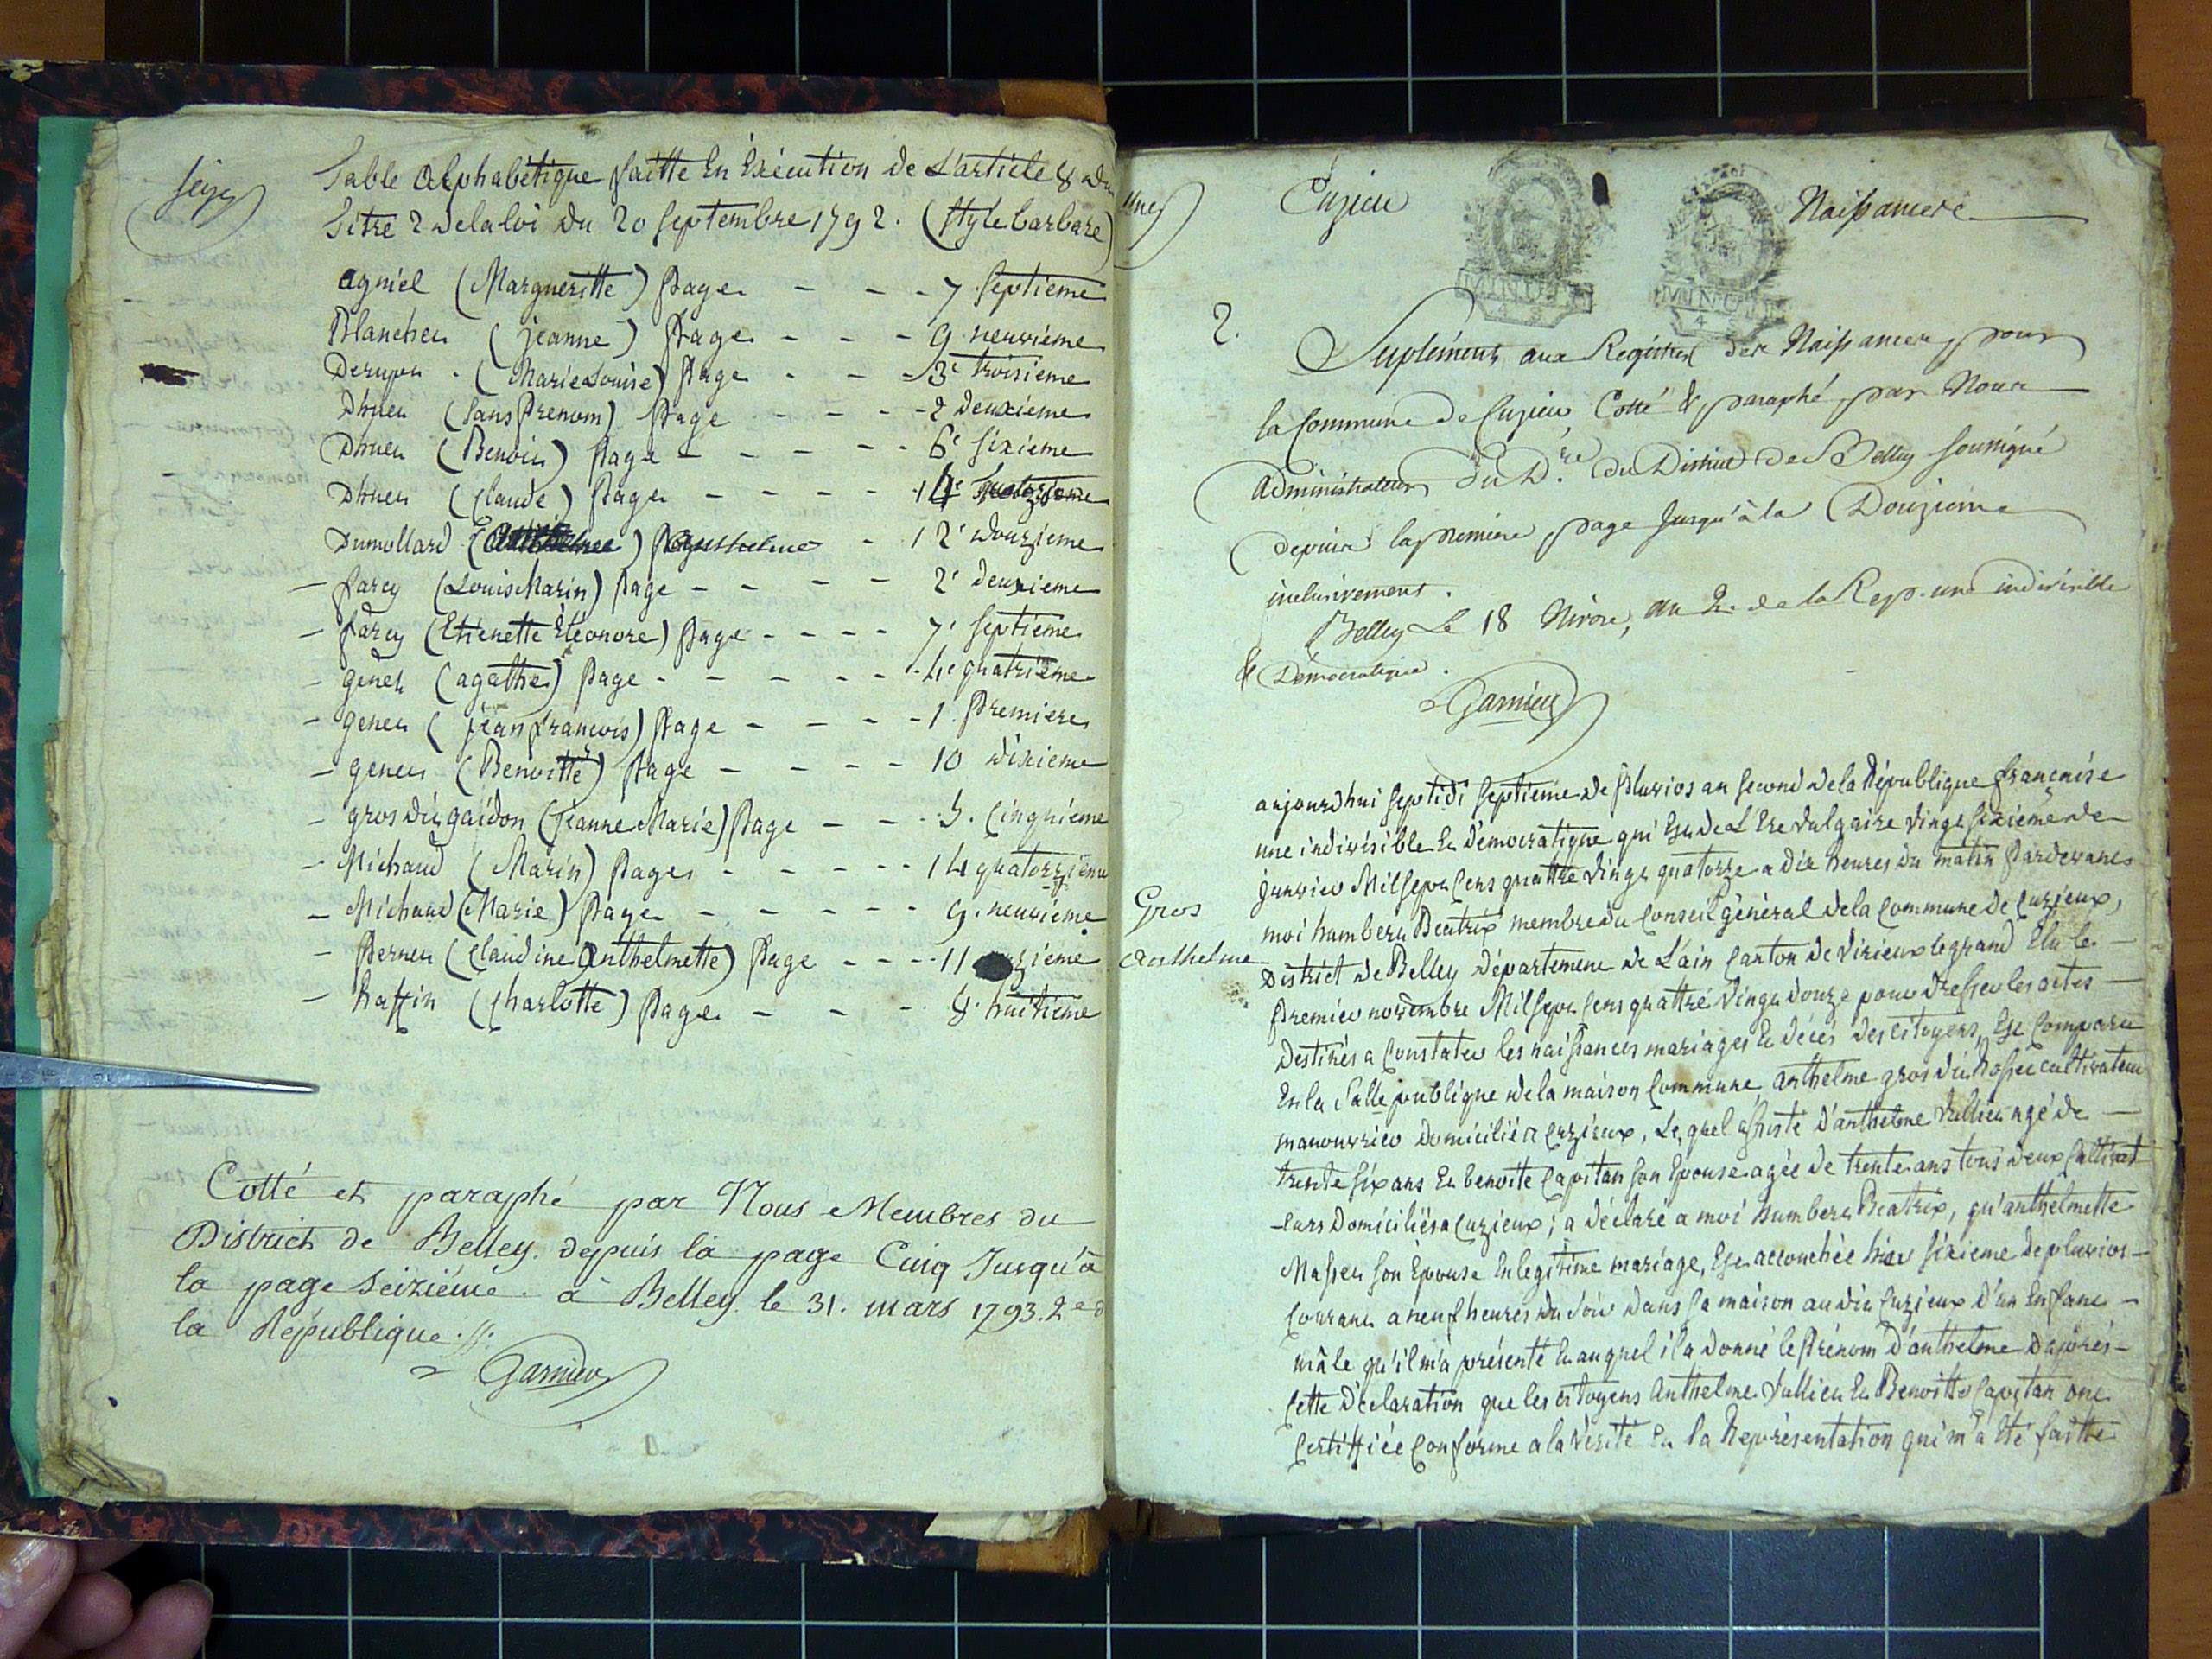 seize
Table Alphabétique faitte En Exécution de L'article 8 du
titre 2 de la loi du 20 septembre 1792. (Style barbare)
agniel (Margueritte) Page - - - 7 Septieme
Blanchet (jeanne) Page - - - 9 neuvième
(Marie Louise) Page - - - 3e troisieme
Druet (Sans Prenom) Page - - - 2 deuxieme
Druet (Benoit) Page - - - - - 6e Sixieme
Druet (Claude) Page - - - - 14e quatorzieme
Dumollard ( ) anthelme - 12e douzieme
- farcy (Louis Marin) Page - - - - 2e deuxieme
- farcy (Etienette Eléonore) Page - - - - 7e Septieme
- genet (agathe) Page - - - - - 4e quatrième
- genet (jean francois) Page - - - - 1. Premiere
- genet (Benoitte) Page - - - - 10 dixieme
- gros dit gaidon (jeanne Marie) Page - - - 5. Cinquième
- Michaud (Marin) Page - - - - - 14 quatorzième
- Michaud (Marie) Page - - - - - 9. neuvième
- Pernet (Claudine Anthelmette) Page - - - - 11 onzième
- (Charlotte) Page - - - 8. huitième
Cotté et paraphé par Nous Membres du
District de Belley depuis la page Cinq Jusqu'à
la page Seizième. à Belley le 31. mars 1793. 2e d
la République.
Garnier
une
Cuzieu
Naissance
MINUTE
MINUTE
2.
Suplément aux Registres des Naissances pour
la Commune de Cuzieu, Cotté & paraphé par Nous
Administrateur du D.re du District de Belley soussigné
depuis la premiere page jusqu'à la Douzieme
inclusivement.
Belley Le 18 Nivose, an 2. de la Rep. une indivisible
& Démocratique.
Garnier
aujourdhui Septidi Septieme de Pluvios an second de la République française
une indivisible Et démocratique qui Est de L'Ere Vulgaire Vingt sixieme de
janvier Mil Sept Cens quattre Vingt quatorze a dix heures du matin Pardevant
moi humbert Beatrix membre du Conseil général de la Commune de Cuzieux,
District de Belley département de L'ain Canton de Virieux le grand Elu le
Premier novembre Mil Sept Cens quattre Vingt douze pour dresser les actes
Destinés a Constater les naissances mariages Et décés des Citoyens, Est Comparu
En la Salle publique de la maison Commune, anthelme gros dit Rosset cultivateur
manouvrier domicilié a Cuzieux, Lequel assisté d'anthelme Vullier agé de
trente six ans Et benoite Capitan Son Epouse agée de trente ans tous deux Cultivat
-eurs Domiciliés a Cuzieux; a déclaré a moi humbert Beatrix, qu'anthelmette
Masset Son Epouse En legitime mariage, Est accouchée hier sixieme de pluvios
Courant a neuf heures du soir dans Sa maison audit Cuzieux d'un Enfant
mâle qu'il m'a présenté Et auquel il a donné le Prénom d'anthelme D'après
Cette Déclaration que les citoyens Anthelme Vullier Et Benoitte Capitan ont
Certiffiée Conforme a la Vérité Et la Représentation qui m'a été faitte
Gros
Anthelme